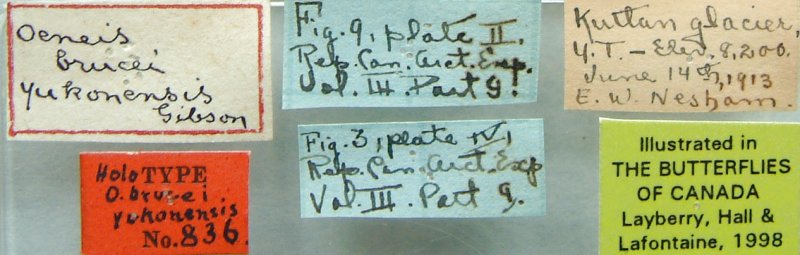 Oeneis
brucei
yukonensis
Gibson
Fig. 9, plate II.
Rep. Can. Arct. Exp.
Vol. III. Part 9.
Kuttan glacier,
Y.T. – Elev. 8,200.
June 14th, 1913
E. W. Nesham.
Holo TYPE
O. brucei
yukonensis
No. 836.
Fig. 3, plate IV,
Rep. Can. Arct. Exp
Vol. III. Part 9.
Illustrated in
THE BUTTERFLIES
OF CANADA
Layberry, Hall &
Lafontaine, 1998